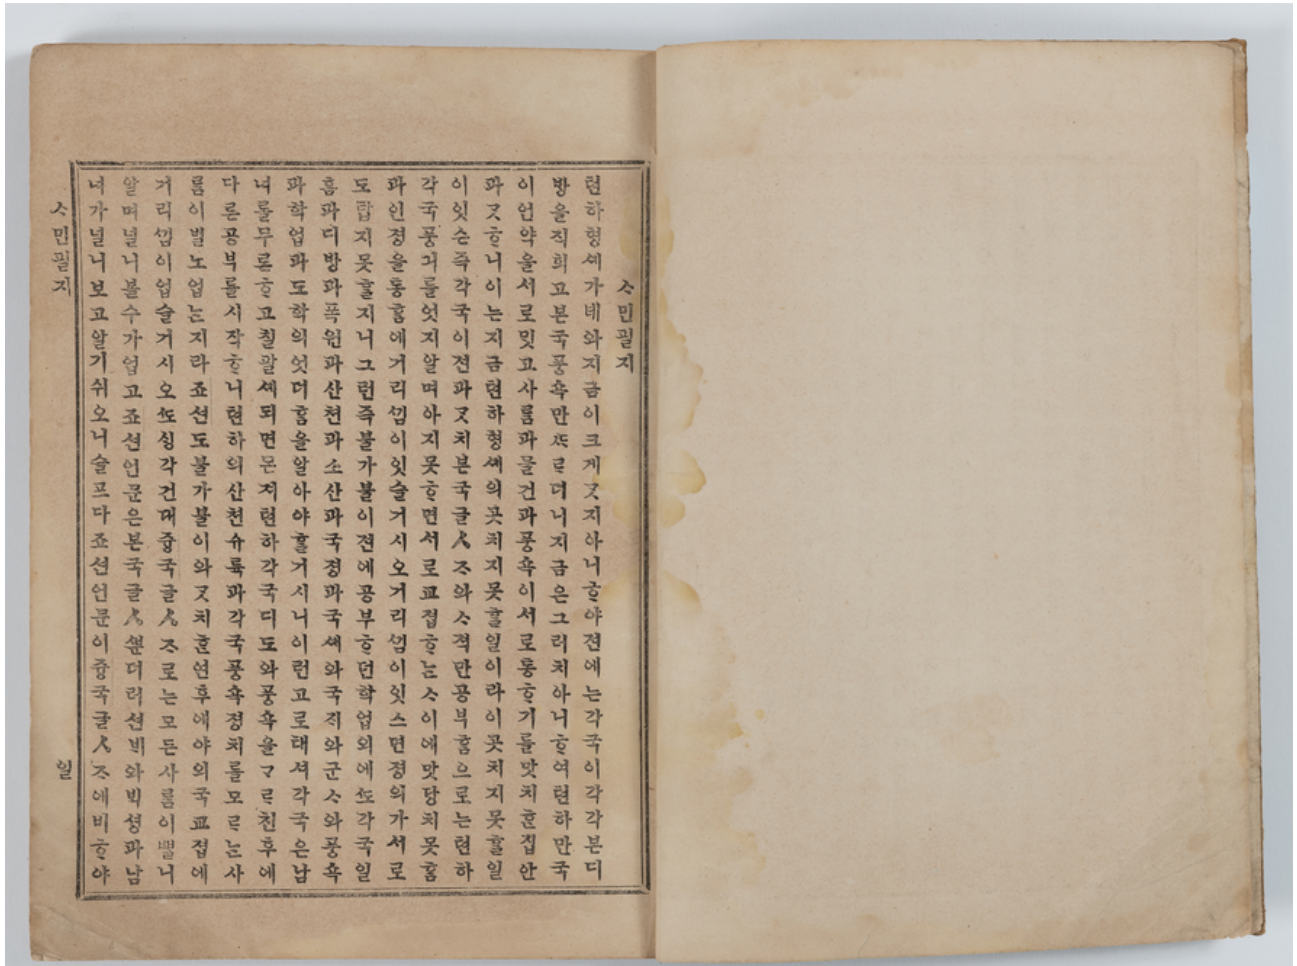 ᄉᆞ민필지
텬하형셰가녜와지금이크게ᄀᆞᆺ지아니ᄒᆞ야젼에는각국이각각본디
방을직희고본국풍쇽만ᄯᆞᄅᆞ더니지금은그러치아니ᄒᆞ여텬하만국
이언약을서로밋고사ᄅᆞᆷ과물건과풍쇽이서로통ᄒᆞ기를맛치ᄒᆞᆫ집안
과ᄀᆞᆺᄒᆞ니이는지금텬하형셰의곳치지못ᄒᆞᆯ일이라이곳치지못ᄒᆞᆯ일
이잇슨즉각국이젼과ᄀᆞᆺ치본국글ㅅᄌᆞ와ᄉᆞ젹만공부ᄒᆞᆷ으로는텬하
각국풍긔를엇지알며아지못ᄒᆞ면서로교졉ᄒᆞᄂᆞᆫᄉᆞ이에맛당치못ᄒᆞᆷ
과인졍을통ᄒᆞᆷ에거리ᄭᅵᆷ이잇슬거시오거리ᄭᅵᆷ이잇스면졍의가서로
도탑지못ᄒᆞᆯ지니그런즉불가불이젼에공부ᄒᆞ던학업외에ᄯᅩ각국일
홈과디방과폭원과산쳔과소산과국졍과국셰와국ᄌᆡ와군ᄉᆞ와풍쇽
과학업과도학의엇더ᄒᆞᆷ을알아야ᄒᆞᆯ거시니이런고로태셔각국은남
녀를무론ᄒᆞ고칠팔셰되면몬져텬하각국디도와풍쇽을ᄀᆞᄅᆞ친후에
다른공부를시작ᄒᆞ니텬하의산쳔슈륙과각국풍쇽졍치를모ᄅᆞᄂᆞᆫ사
ᄅᆞᆷ이별노업ᄂᆞᆫ지라죠션도불가불이와ᄀᆞᆺ치ᄒᆞᆫ연후에야외국교졉에
거리ᄭᅵᆷ이업슬거시오ᄯᅩᄉᆡᆼ각건대즁국글ㅅᄌᆞ로는모든사ᄅᆞᆷ이ᄲᆞᆯ니
알며널니볼수가업고죠션언문은본국글ㅅᄲᅮᆫ더러션ᄇᆡ와ᄇᆡᆨ셩과남
녀가널니보고알기쉬오니슬프다죠션언문이즁국글ㅅᄌᆞ에비ᄒᆞ야
ᄉᆞ민필지
일